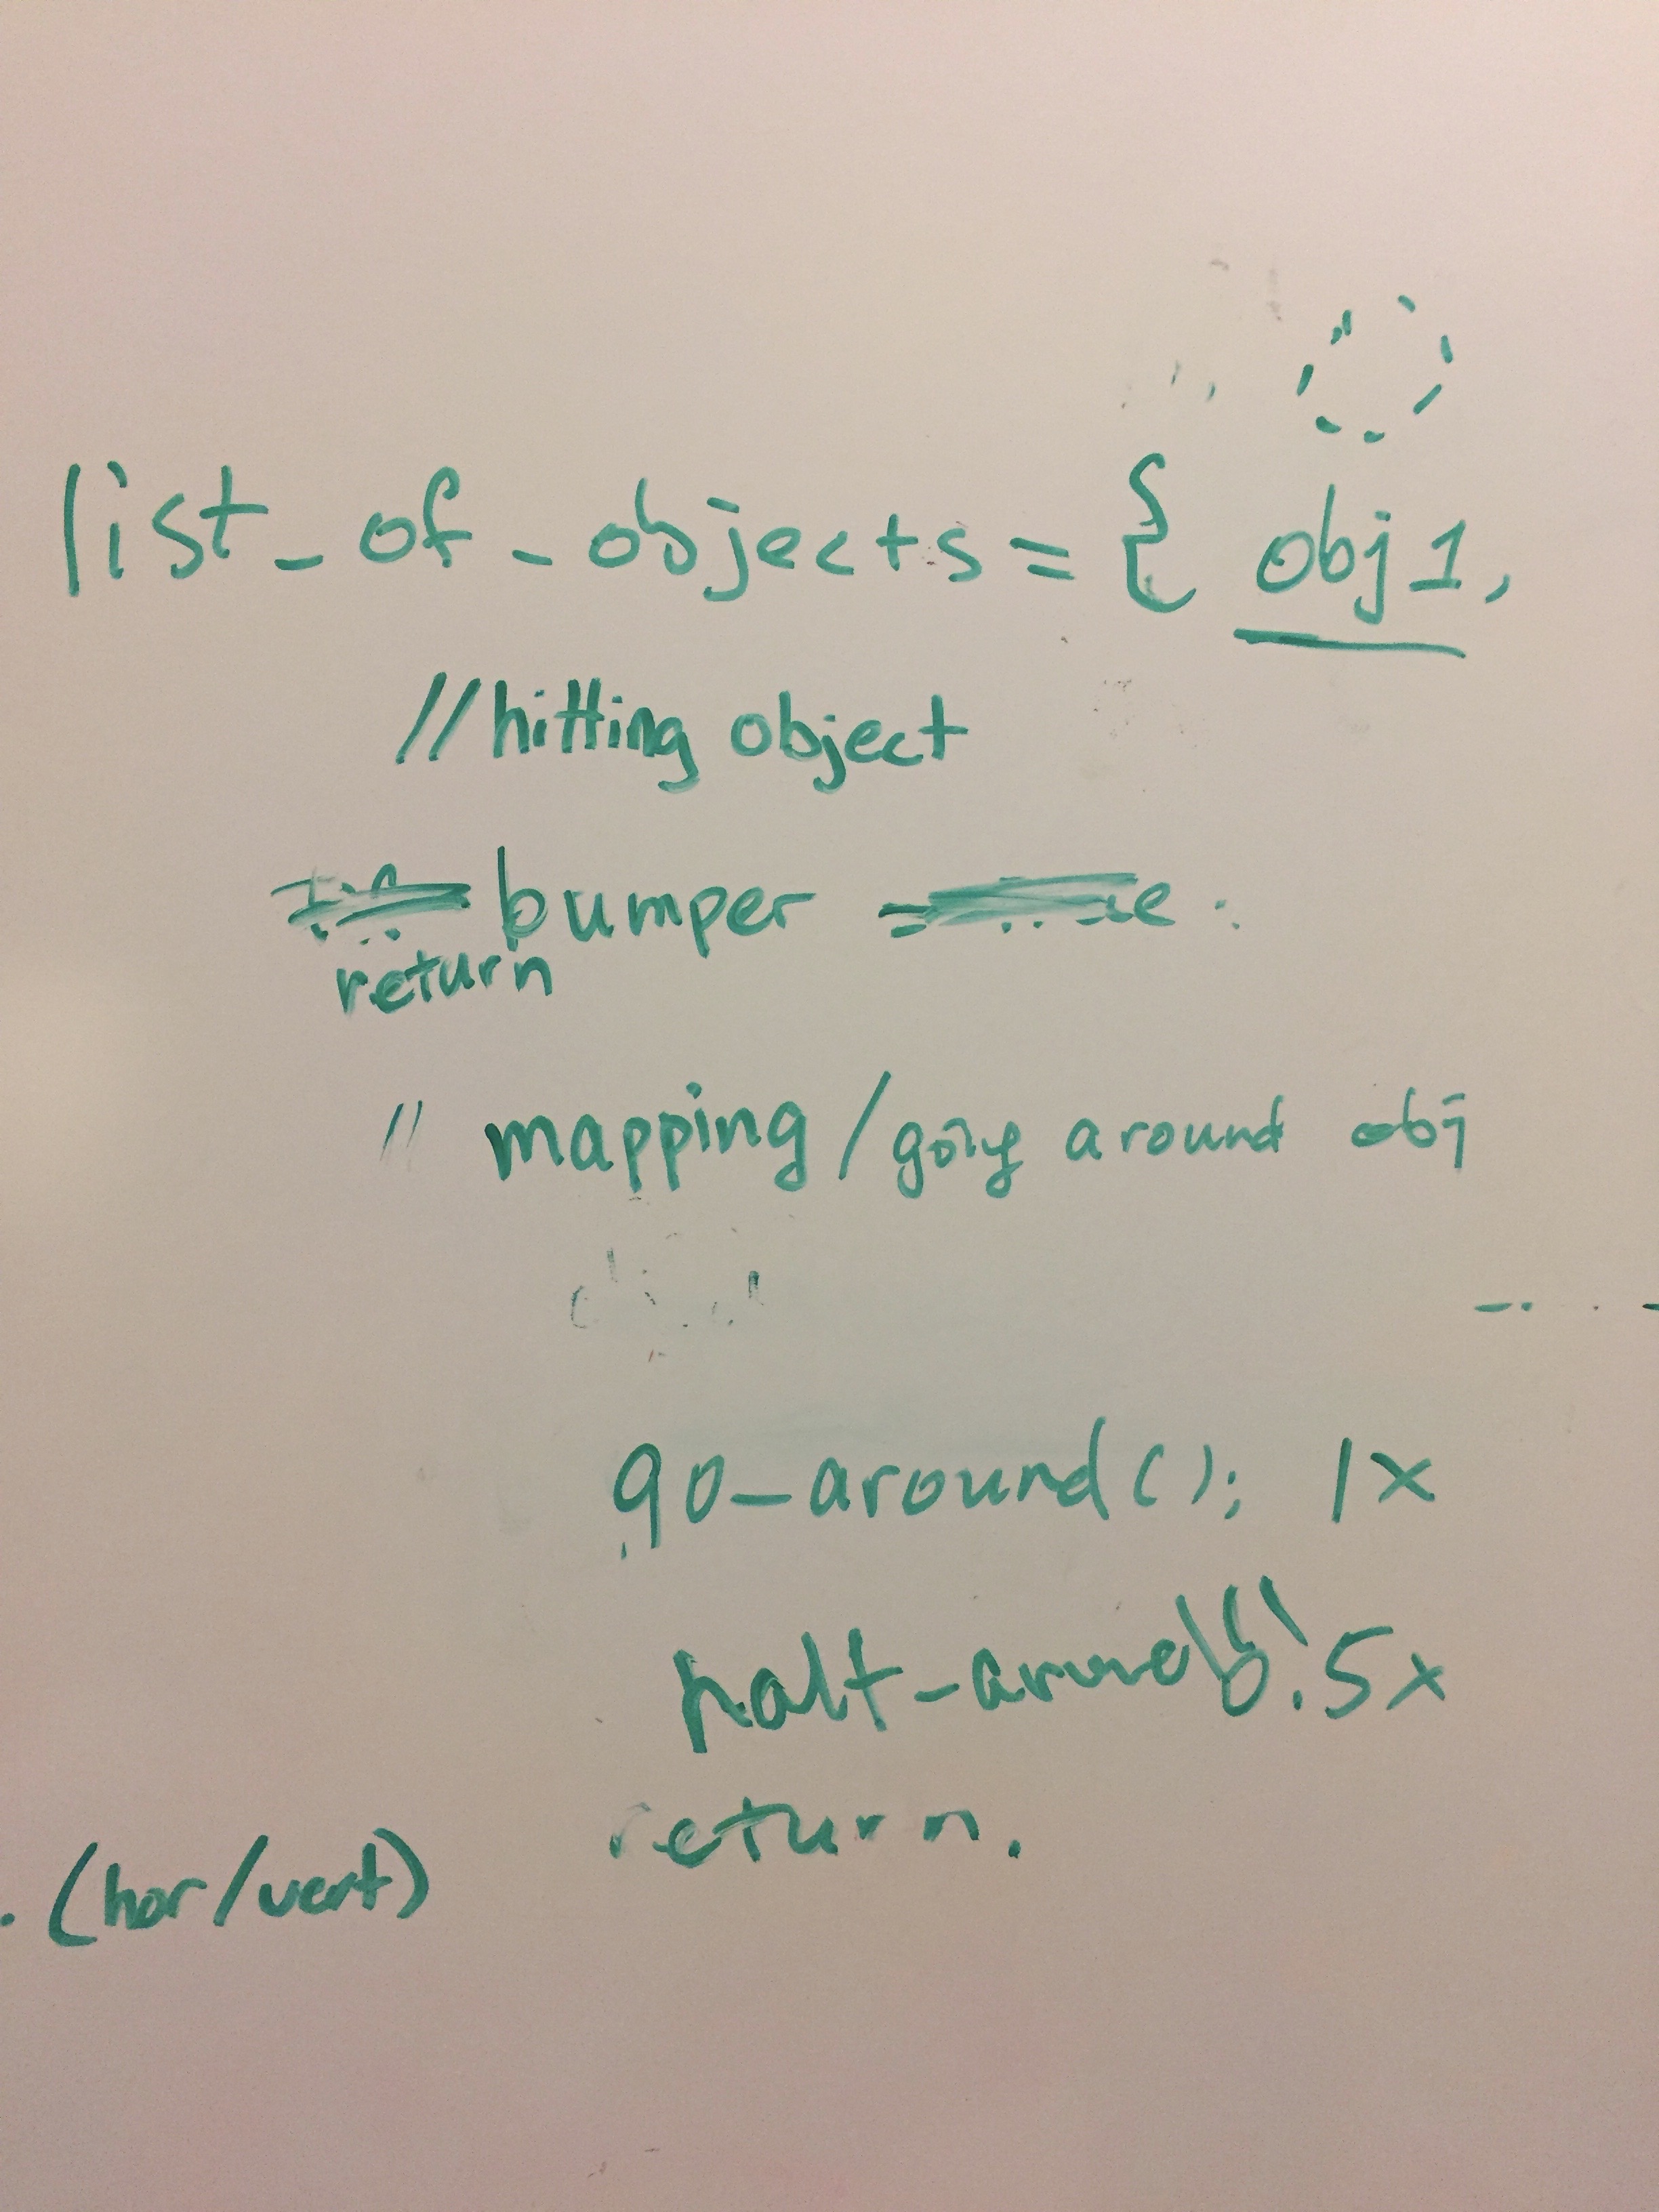 list_of_objects = { obj 1,
// hitting object
bumper
return
// mapping / going around obj
go_around(); 1x
.5x
return.
(hor/vert)